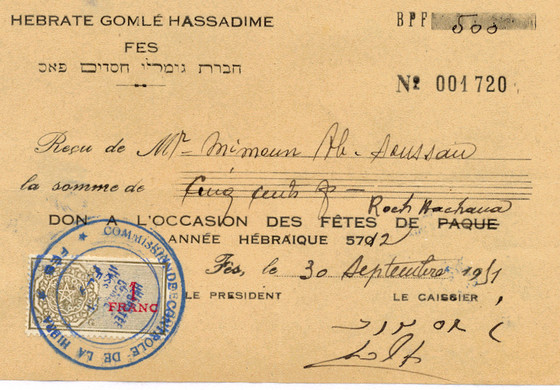 HEBRATE GOMLÉ HASSADIME
FES
חברת גומלי חסדים פאס
BPF 500
Nº 001720
Reçu de Mr Mimoun Ab. Soussan
la somme de Cinq cents f
DON A L'OCCASION DES FÊTES DE PAQUE Roch Hachana
ANNÉE HÉBRAIQUE 5712
Fes, le 30 Septembre 1951
LE PRESIDENT
LE CAISSIER
COMMISSION DE CONTROLE DE LA HIBRA
FES
1
FRANC